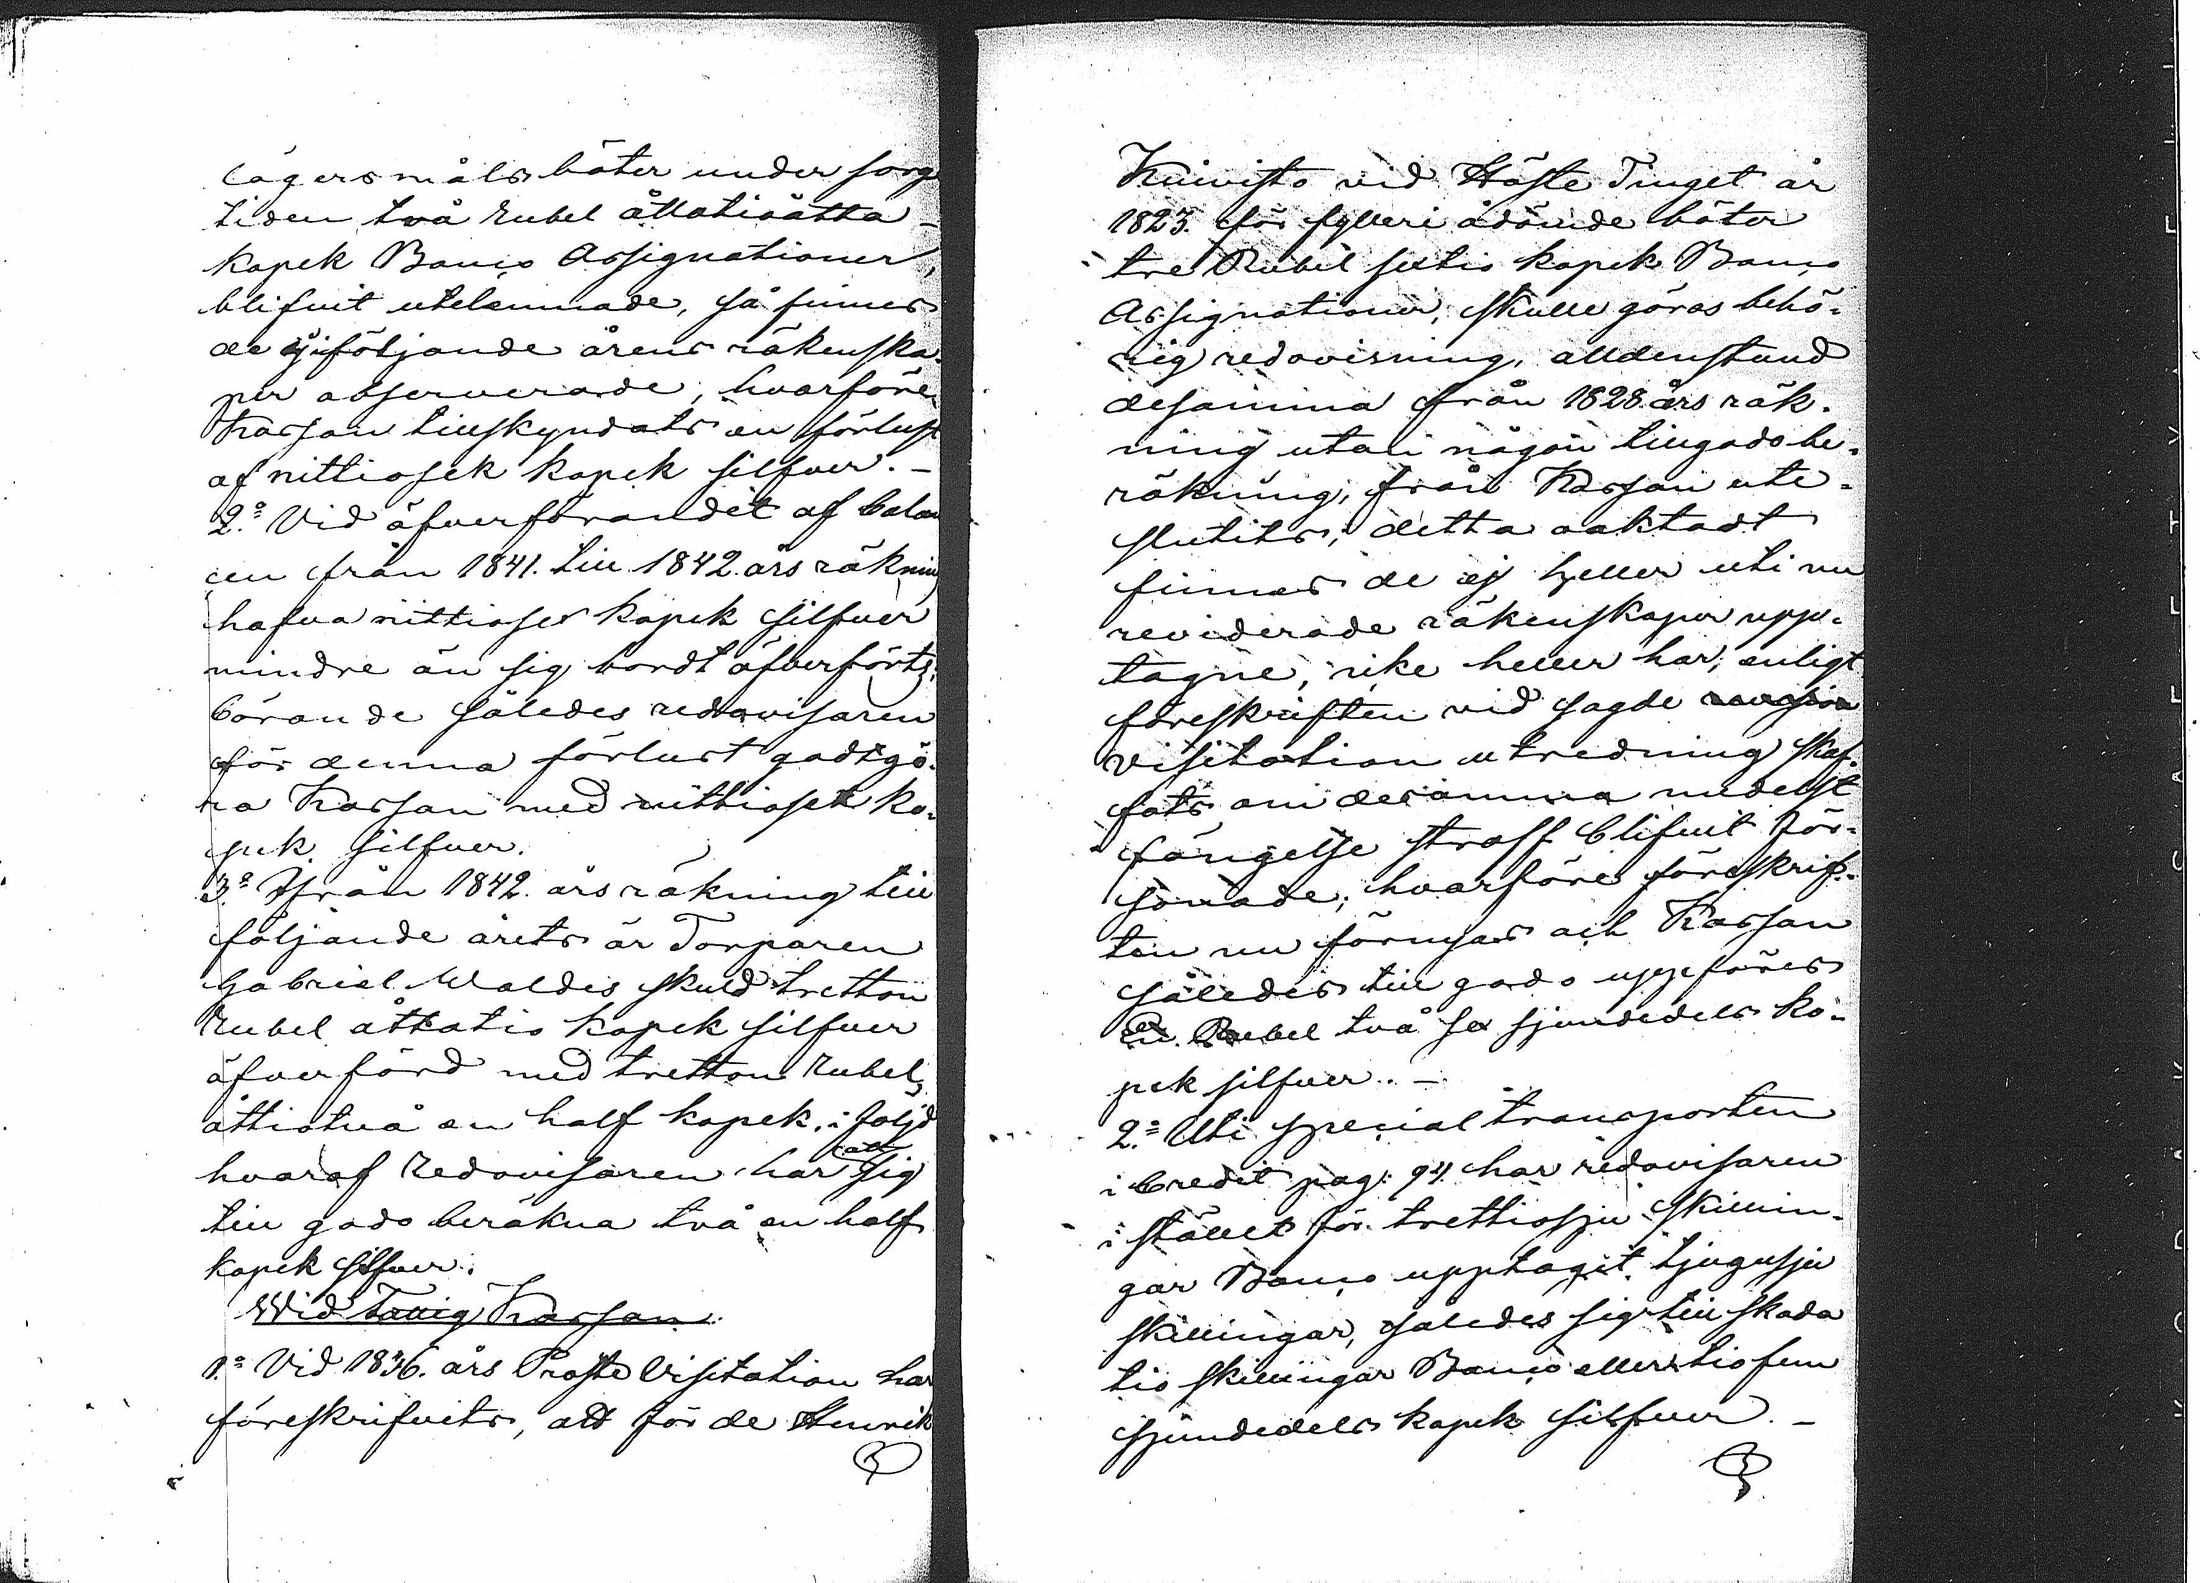 lägersmåls böter under sorg
tiden två Rubel åttatioåtta
kopek Banco Assignationer,
blifvit utelemnade, så finnes
de ej i följande årens räkenska-
per observerade, hvarföre
Kassan tillskyndats en förlust
af nittiosex kopek silfver. –
2:o Vid öfverförandet af balan
cen från 1841. till 1842. års räkning
hafva nittiosex kopek silfver
mindre än sig bordt öfverförts,
börande således redovisaren
för denna förlust godtgö-
ra Kassan med nittiosex ko-
pek silfver.
3:o Ifrån 1842. års räkning till
följande årets är Torparen
Gabriel Waldes skuld tretton
Rubel åttatio kopek silfver
öfverförd med tretton Rubel
åttiotvå en half kopek, i följd
hvaraf Redovisaren har att sig
till godo beräkna två en half
kopek silfver.
Wid Fattig Kassan.
1:o Vid 1836. års Prosts Visitation har
föreskrifvits, att för de Henrik
Kuivisto vid Höste Tinget år
1823. för fylleri ådömde böter
tre Rubel sextio kopek Banco
Assignationer, skulle göras behö-
rig redovisning, alldenstund
desamma från 1828 års räk-
ning utan någon tillgodobe-
räkning, från Kassan ute-
slutits; detta oaktadt
finnas de ej heller uti nu
reviderade räkenskaper upp-
tagne, icke heller har, enligt
föreskriften vid sagde
visitation utredning skaf-
fats om desamma medelst
fängelse straff blifvit för-
sonade; hvarföre föreskrif-
ten nu förnyas och Kassan
således till godo uppföres
En Rubel två sex sjundedels ko-
pek silfver. –
2:o Uti special transporten
i Credit pag: 94. har redovisaren
i stället för trettiosju skillin-
gar Banco upptagit tjugusju
skillingar, således sig till skada
tio skillingar Banco eller tio fem
sjundedels kopek silfver. –